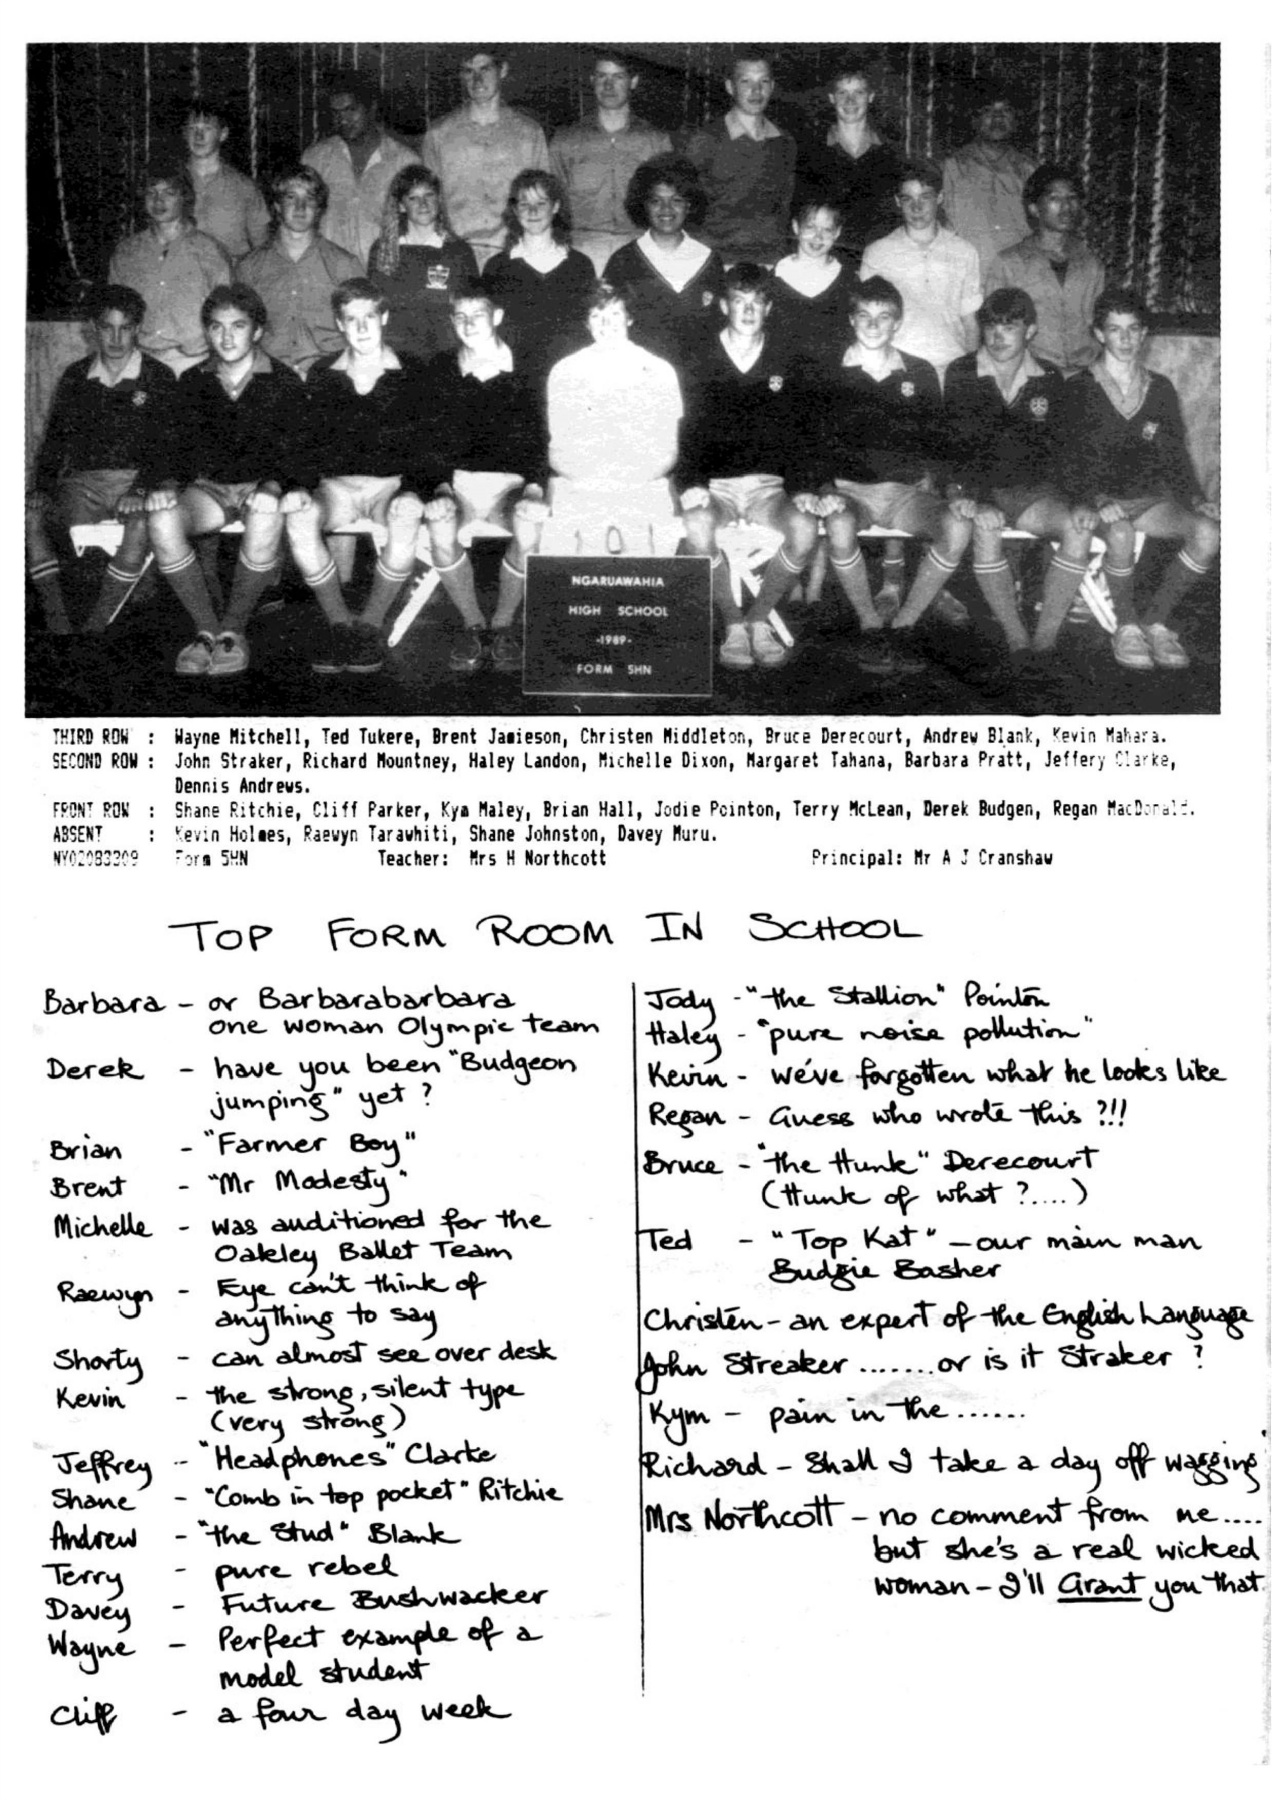 1 0 1
NGARUAWAHIA
HIGH SCHOOL
-1989-
FORM 5HN
THIRD ROW : Wayne Mitchell, Ted Tukere, Brent Jamieson, Christen Middleton, Bruce Derecourt, Andrew Blank, Kevin Mahara.
SECOND ROW : John Straker, Richard Mountney, Haley Landon, Michelle Dixon, Margaret Tahana, Barbara Pratt, Jeffery Clarke,
Dennis Andrews.
FRONT ROW : Shane Ritchie, Cliff Parker, Kym Maley, Brian Hall, Jodie Pointon, Terry McLean, Derek Budgen, Regan MacDonald.
ABSENT : Kevin Holmes, Raewyn Tarawhiti, Shane Johnston, Davey Muru.
NY02083309 Form 5HN Teacher: Mrs H Northcott Principal: Mr A J Cranshaw
TOP FORM ROOM IN SCHOOL
Barbara - or Barbarabarbara
one woman Olympic team
Derek - have you been "Budgeon
jumping" yet ?
Brian - "Farmer Boy"
Brent - "Mr Modesty"
Michelle - was auditioned for the
Oakley Ballet Team
Raewyn - Eye can't think of
anything to say
Shorty - can almost see over desk
Kevin - the strong, silent type
(very strong)
Jeffrey - "Headphones" Clarke
Shane - "Comb in top pocket" Ritchie
Andrew - "the Stud" Blank
Terry - pure rebel
Davey - Future Bushwacker
Wayne - Perfect example of a
model student
Cliff - a four day week
Jody - "the Stallion" Pointon
Haley - "pure noise pollution"
Kevin - we've forgotten what he looks like
Regan - Guess who wrote this ?!!
Bruce - "the Hunk" Derecourt
(Hunk of what ?....)
Ted - "Top Kat" - our main man
Budgie Basher
Christen - an expert of the English Language
John Streaker .......or is it Straker ?
Kym - pain in the ......
Richard - Shall I take a day off wagging"
Mrs Northcott - no comment from me....
but she's a real wicked
woman - I'll Grant you that.